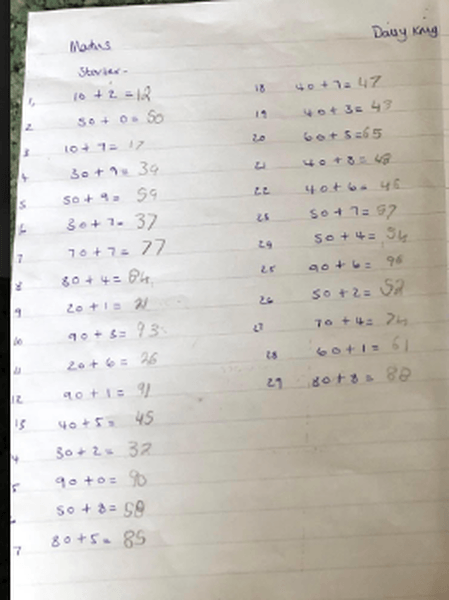 Maths
Daisy King
Starter-
1, 10 + 2 = 12
2 50 + 0 = 50
3 10 + 7 = 17
4 30 + 9 = 39
5 50 + 9 = 59
6 30 + 7 = 37
7 70 + 7 = 77
8 80 + 4 = 84
9 20 + 1 = 21
10 90 + 3 = 93
11 20 + 6 = 26
12 90 + 1 = 91
13 40 + 5 = 45
4 30 + 2 = 32
5 90 + 0 = 90
50 + 8 = 58
7 80 + 5 = 85
18 40 + 7 = 47
19 40 + 3 = 43
20 60 + 5 = 65
21 40 + 8 = 48
22 40 + 6 = 46
23 50 + 7 = 57
24 50 + 4 = 54
25 90 + 6 = 96
26 50 + 2 = 52
27 70 + 4 = 74
28 60 + 1 = 61
29 80 + 8 = 88